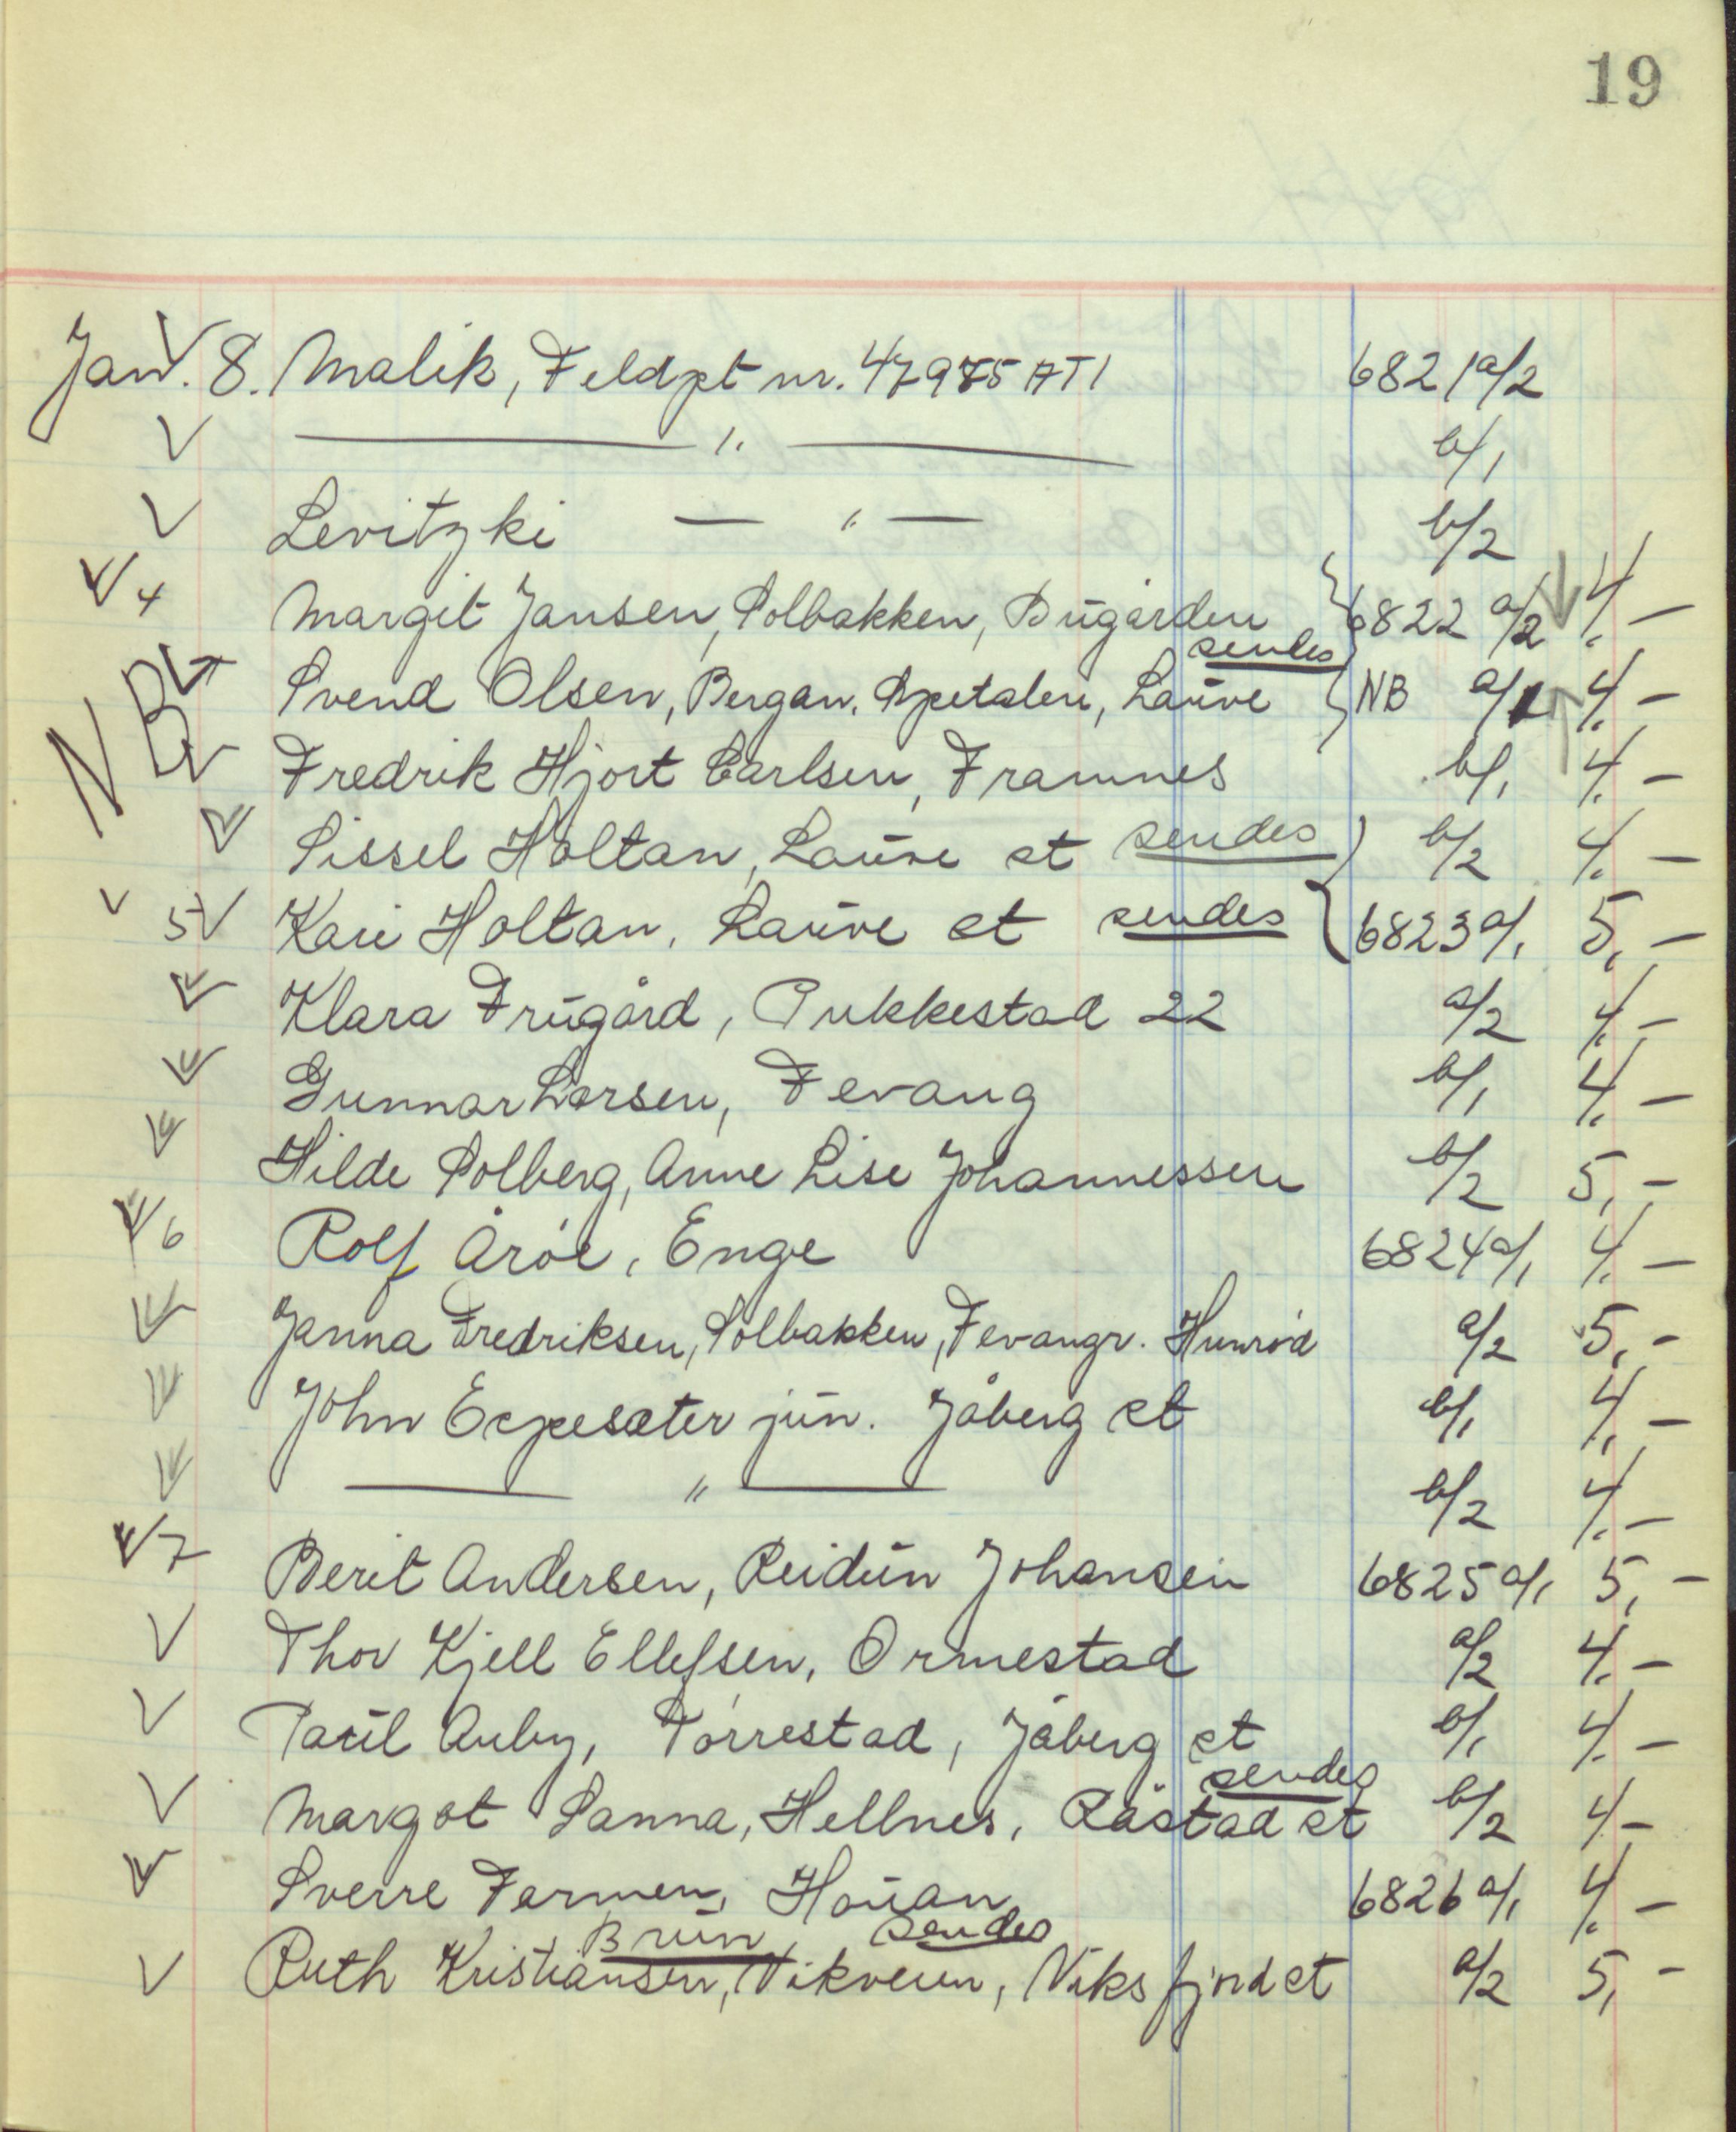 19
Jan. 8. Malik, Feldpt nr. 47975 AT1 6821 a/2
— " — b/1
Levitzki — " — b/2
4 Margit Jansen, Solbakken, Bugården 6822 a/2 4.-
sendes
NB Svend Olsen, Bergan, Apetalen, Lauve NB a/1 4.-
Fredrik Hjort Carlsen, Framnes b/1 4.-
Sissel Holtan, Lauve st sendes b/2 4.-
5 Kari Holtan, Lauve st sendes 6823 a/1 5,-
Klara Frugård, Pukkestad 22 a/2 4.-
Gunnar Larsen, Fevang b/1 4.-
Hilde Solberg, Anne Lise Johannessen b/2 5,-
6 Rolf Årøe, Enge 6824 a/1 4.-
Janna Fredriksen, Solbakken, Fevangr. Hunrød a/2 5,-
John Espesæter jun. Jåberg st b/1 4,-
— " — b/2 4.-
7 Berit Andersen, Reidun Johansen 6825 a/1 5,-
Thor Kjell Ellefsen, Ormestad a/2 4.-
Paul Auby, Torrestad, Jåberg st b/1 4.-
sendes
Margot Sanna, Hellnes, Råstad st b/2 4-
Sverre Farmen, Houan 6826 a/1 4.-
Brun sendes
Ruth Kristiansen, Vikveien, Viksfjord st a/2 5,-